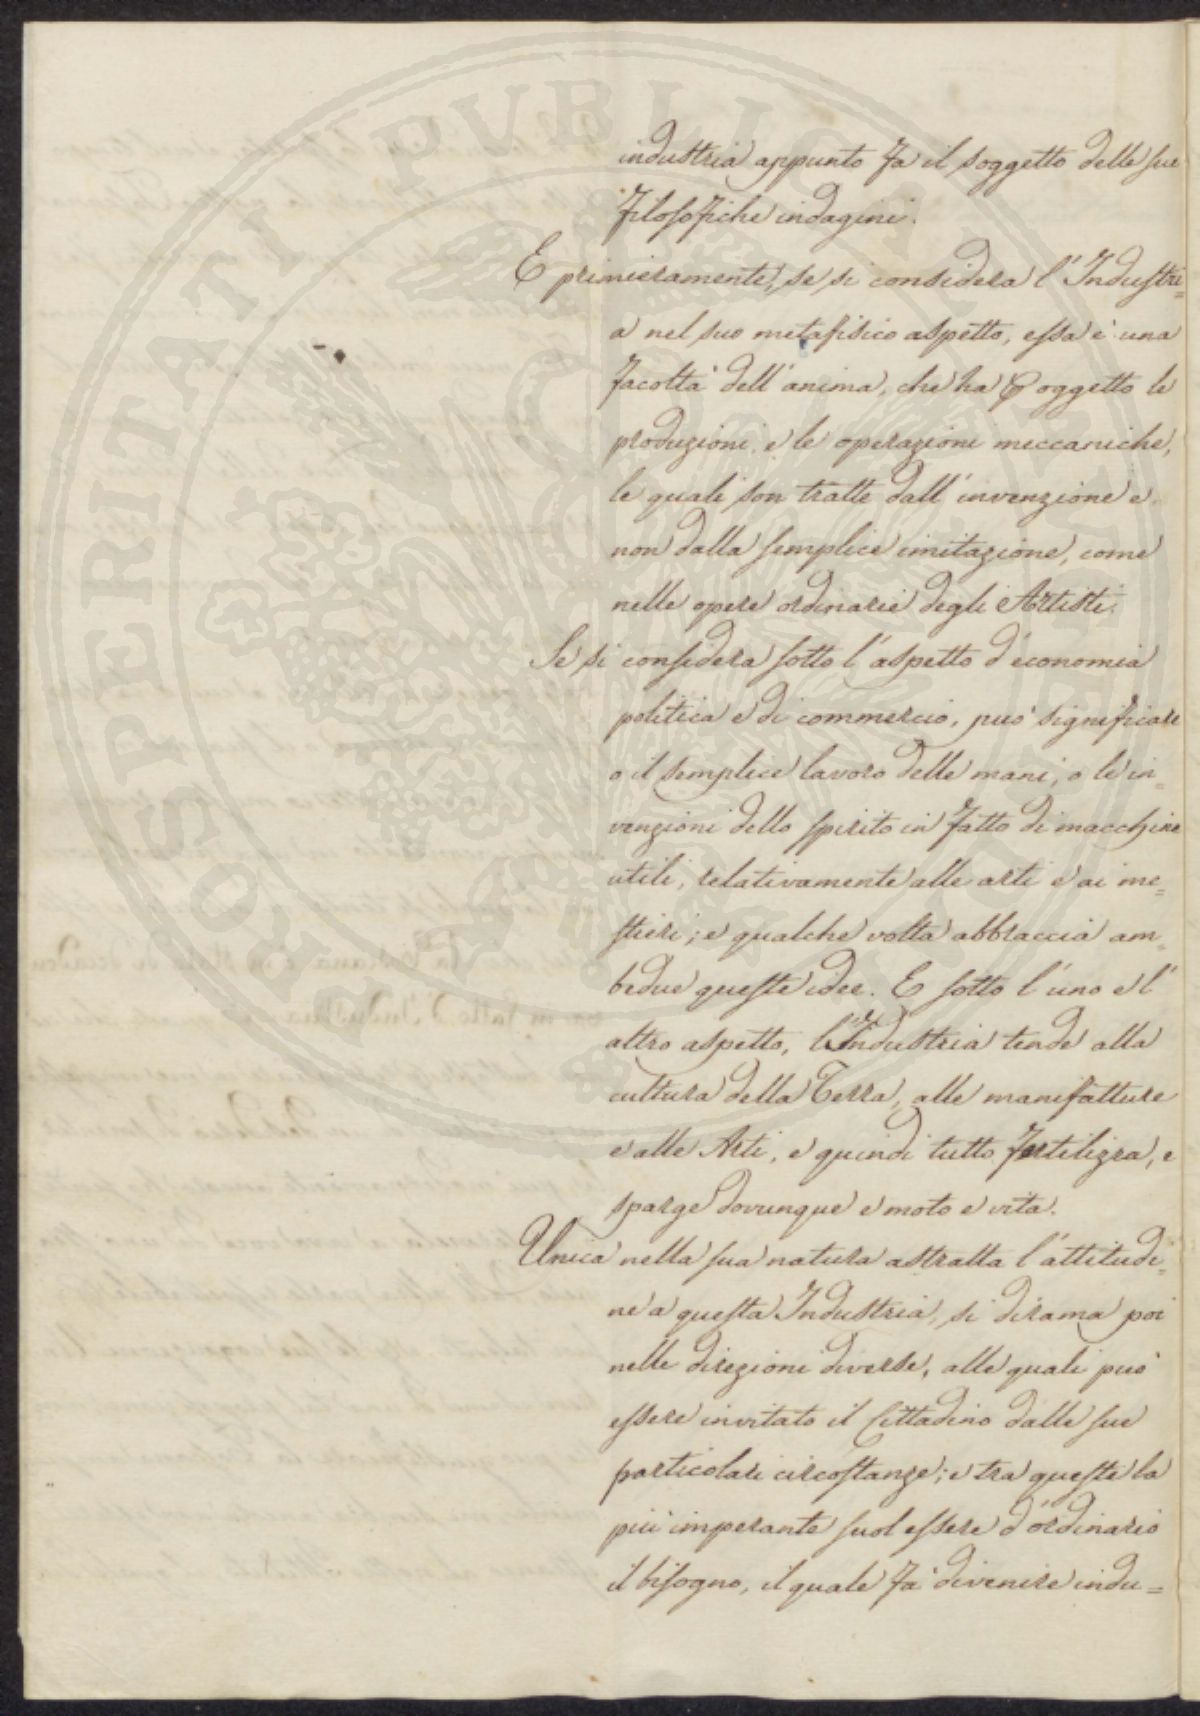 PROSPERITATI PVBLICAE
industria appunto fa il soggetto delle sue
filosofiche indagini.
E primieramente, se si considera l'Industri=
a nel suo metafisico aspetto, essa è una
facoltà dell'anima, che ha oggetto le
produzioni, e le operazioni meccaniche,
le quali son tratte dall'invenzione e
non dalla semplice imitazione, come
nelle opere ordinarie degli Artisti.
Se si considera sotto l'aspetto d'economia
politica e di commercio, può significare
o il semplice lavoro delle mani, o le in=
venzioni dello spirito in fatto di macchine
utili, relativamente alle arti e ai me=
stieri; e qualche volta abbraccia am=
bedue queste idee. E sotto l'uno e l'
altro aspetto, l'Industria tende alla
cultura della Terra, alle manifatture
e alle Arti, e quindi tutto fertilizza, e
sparge dovunque e moto e vita.
Unica nella sua natura astratta l'attitudi=
ne a questa Industria, si dirama poi
nelle direzioni diverse, alle quali può
essere invitato il Cittadino dalle sue
particolari circostanze; e tra queste la
più imperante suol essere d'ordinario
il bisogno, il quale fa divenire indu=